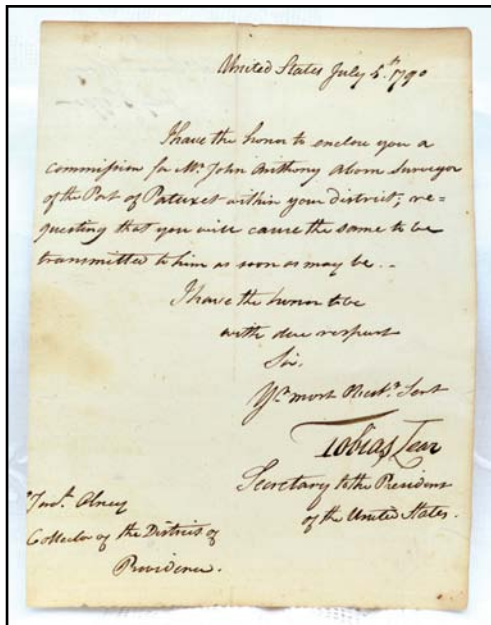 United States July 5.th 1790
I have the honor to enclose you a
commission for Mr. John Anthony Aborn Surveyor
of the Port of Patuxet within your district; re=
questing that you will cause the same to be
transmitted to him as soon as may be..
I have the honor to be
with due respect
Sir.
Yr. most Obedt. Servt
Tobias Lear
Secretary to the President
of the United States.
Olney
Collector of the District of
Providence.